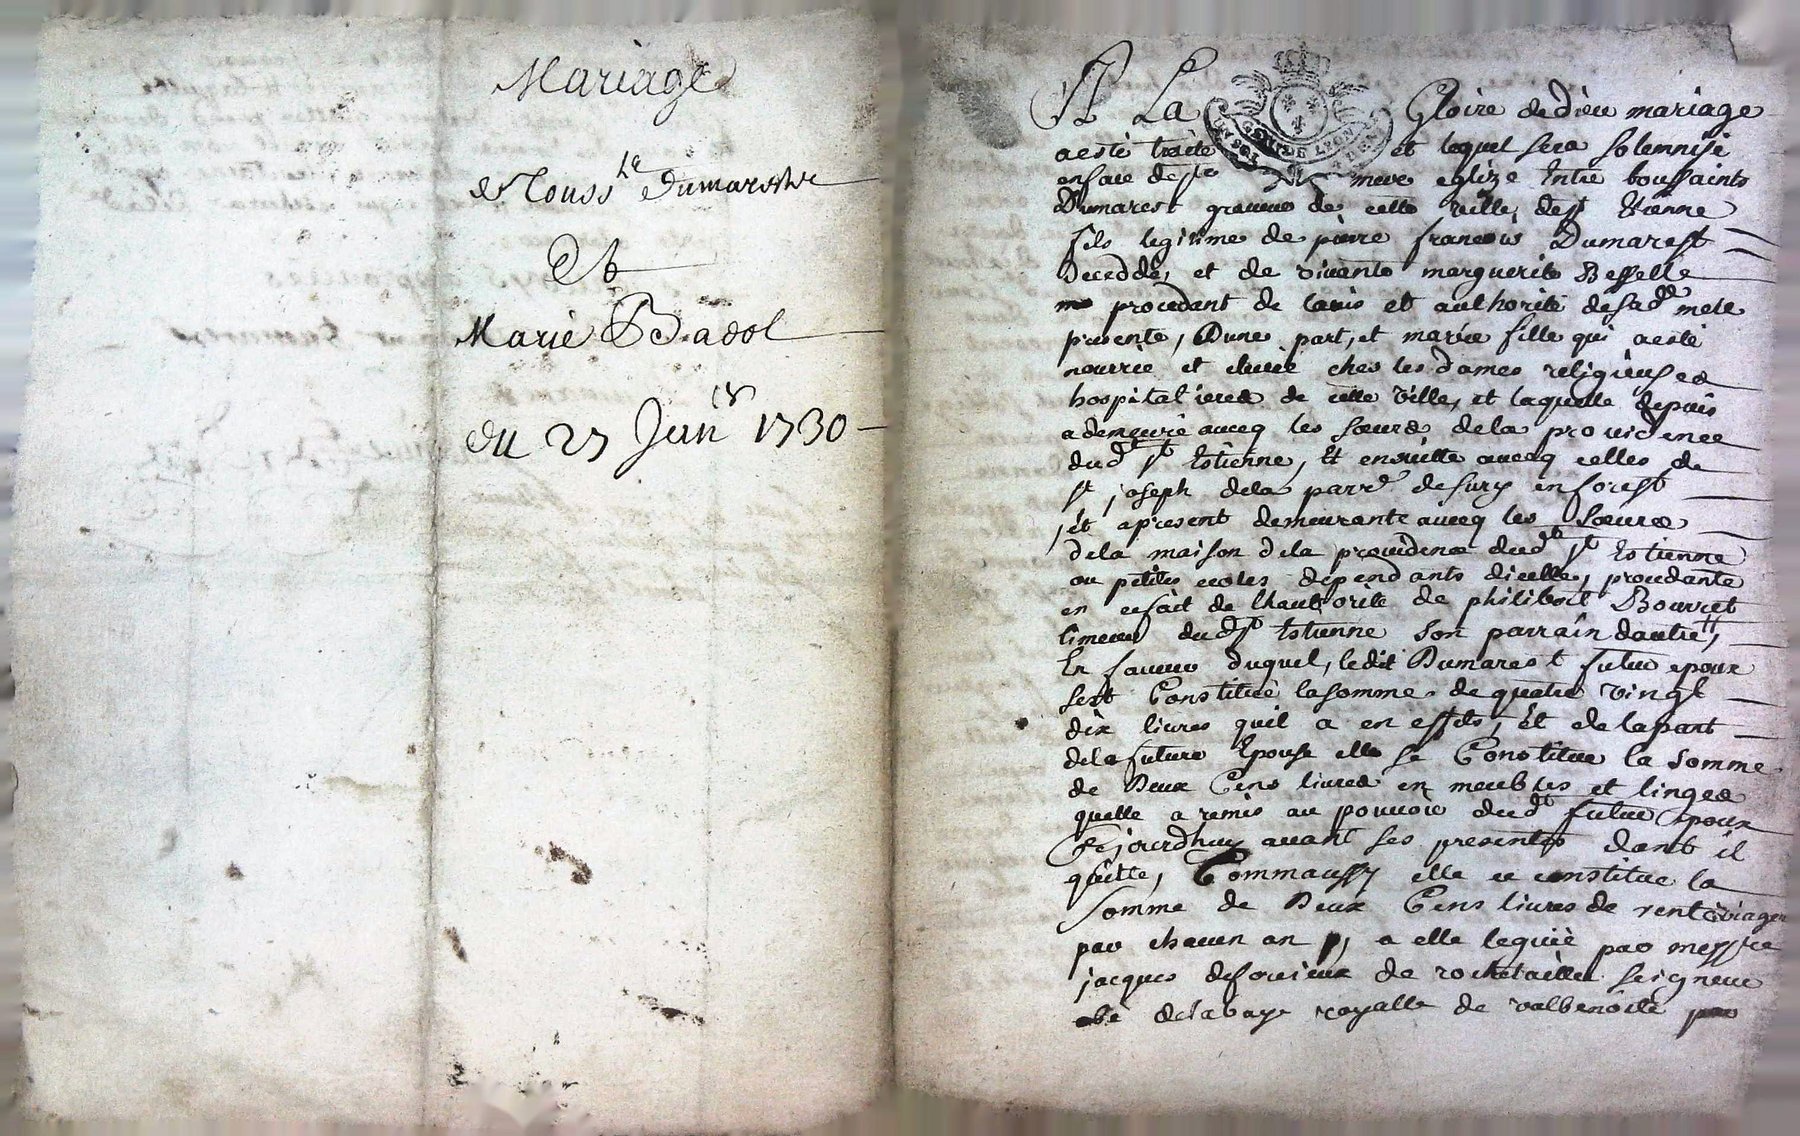 Mariage
de Touss.te Dumarest
Et
Marie Badol
du 27 Jan.er 1730
A La Gloire de dieu mariage
a esté traité et lequel sera solemnisé
en face de s.te mere eglize Entre toussaints
Dumarest graveur de cette ville de s.t Etienne
fils legitime de pierre francois Dumarest
Decedde, et de vivante marguerite Besselle
procedant de lavis et authorité de sad.e mere
presente, Dune part, et mariee fille qui a esté
nourrie et elevée ches les dames religieuses
hospitalieres de cette ville, et laquelle depuis
a demeuré avecq les sœurs de la providence
dud.t s.t Estienne, Et ensuitte avecq celles de
s.t joseph de la parr.e de sury en forest
et apresent demeurante avecq les sœurs
de la maison de la providence dud.t s.t Estienne
ou petites ecoles dependants dicelle, procedante
en ce fait de lhauthorité de philibert Bourret
limeur dud. s.t Estienne son parrain dautre,
En faveur duquel, ledit Dumarest futur epoux
sest Constitué la somme de quatre vingt
dix livres quil a en effets, Et de la part
de la future Epouse elle se Constitue la somme
de Deux Cens livres en meubles et linges
quelle a remis au pouvoir dud.t futur epoux
Cejourdhuy avant ses presentes dont il
quitte, Comm'aussy elle ce constitue la
somme de Deux Cens livres de rente viagere
par chacun an, a elle leguée par messire
jacques desouvieux de rochetaillee seigneur
abé de labaye royalle de valbenoite